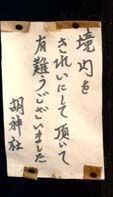 境内を
きれいにして頂いて
有難うございました
胡神社